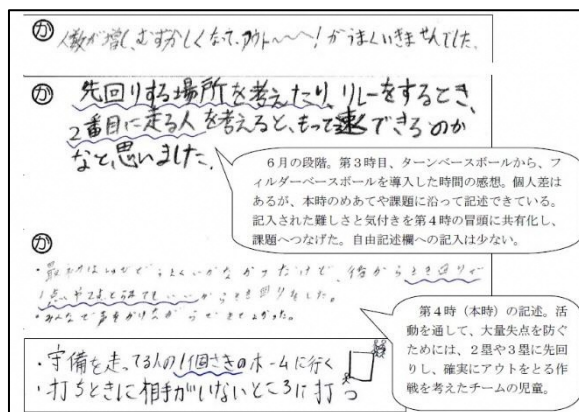 か 人数が増し、むずかしくなって、アウト～～～！がうまくいきませんでした。
か 先回りする場所を考えたり、リレーをするとき、
2番目に走る人を考えると、もって速くできるのか
など思いました。
6月の段階。第3時目、ターンベースボールから、フ
ィルダーベースボールを導入した時間の感想。個人差は
あるが、本時のめあてや課題に沿って記述できている。
記入された難しさと気付きを第4時の冒頭に共有化し、
課題へつなげた。自由記述欄への記入は少ない。
か
・最初は うまくいかなかったけど、 から先回りで
1点や2点とられてもいいから先回りをした。
・みんなで声をかけながらできてよかった。
第4時（本時）の記述。活
動を通して、大量失点を防ぐ
ためには、2塁や3塁に先回
りし、確実にアウトをとる作
戦を考えたチームの児童。
・守備を走ってる人の1個さきのホームに行く
・打うときに相手がいないところに打つ